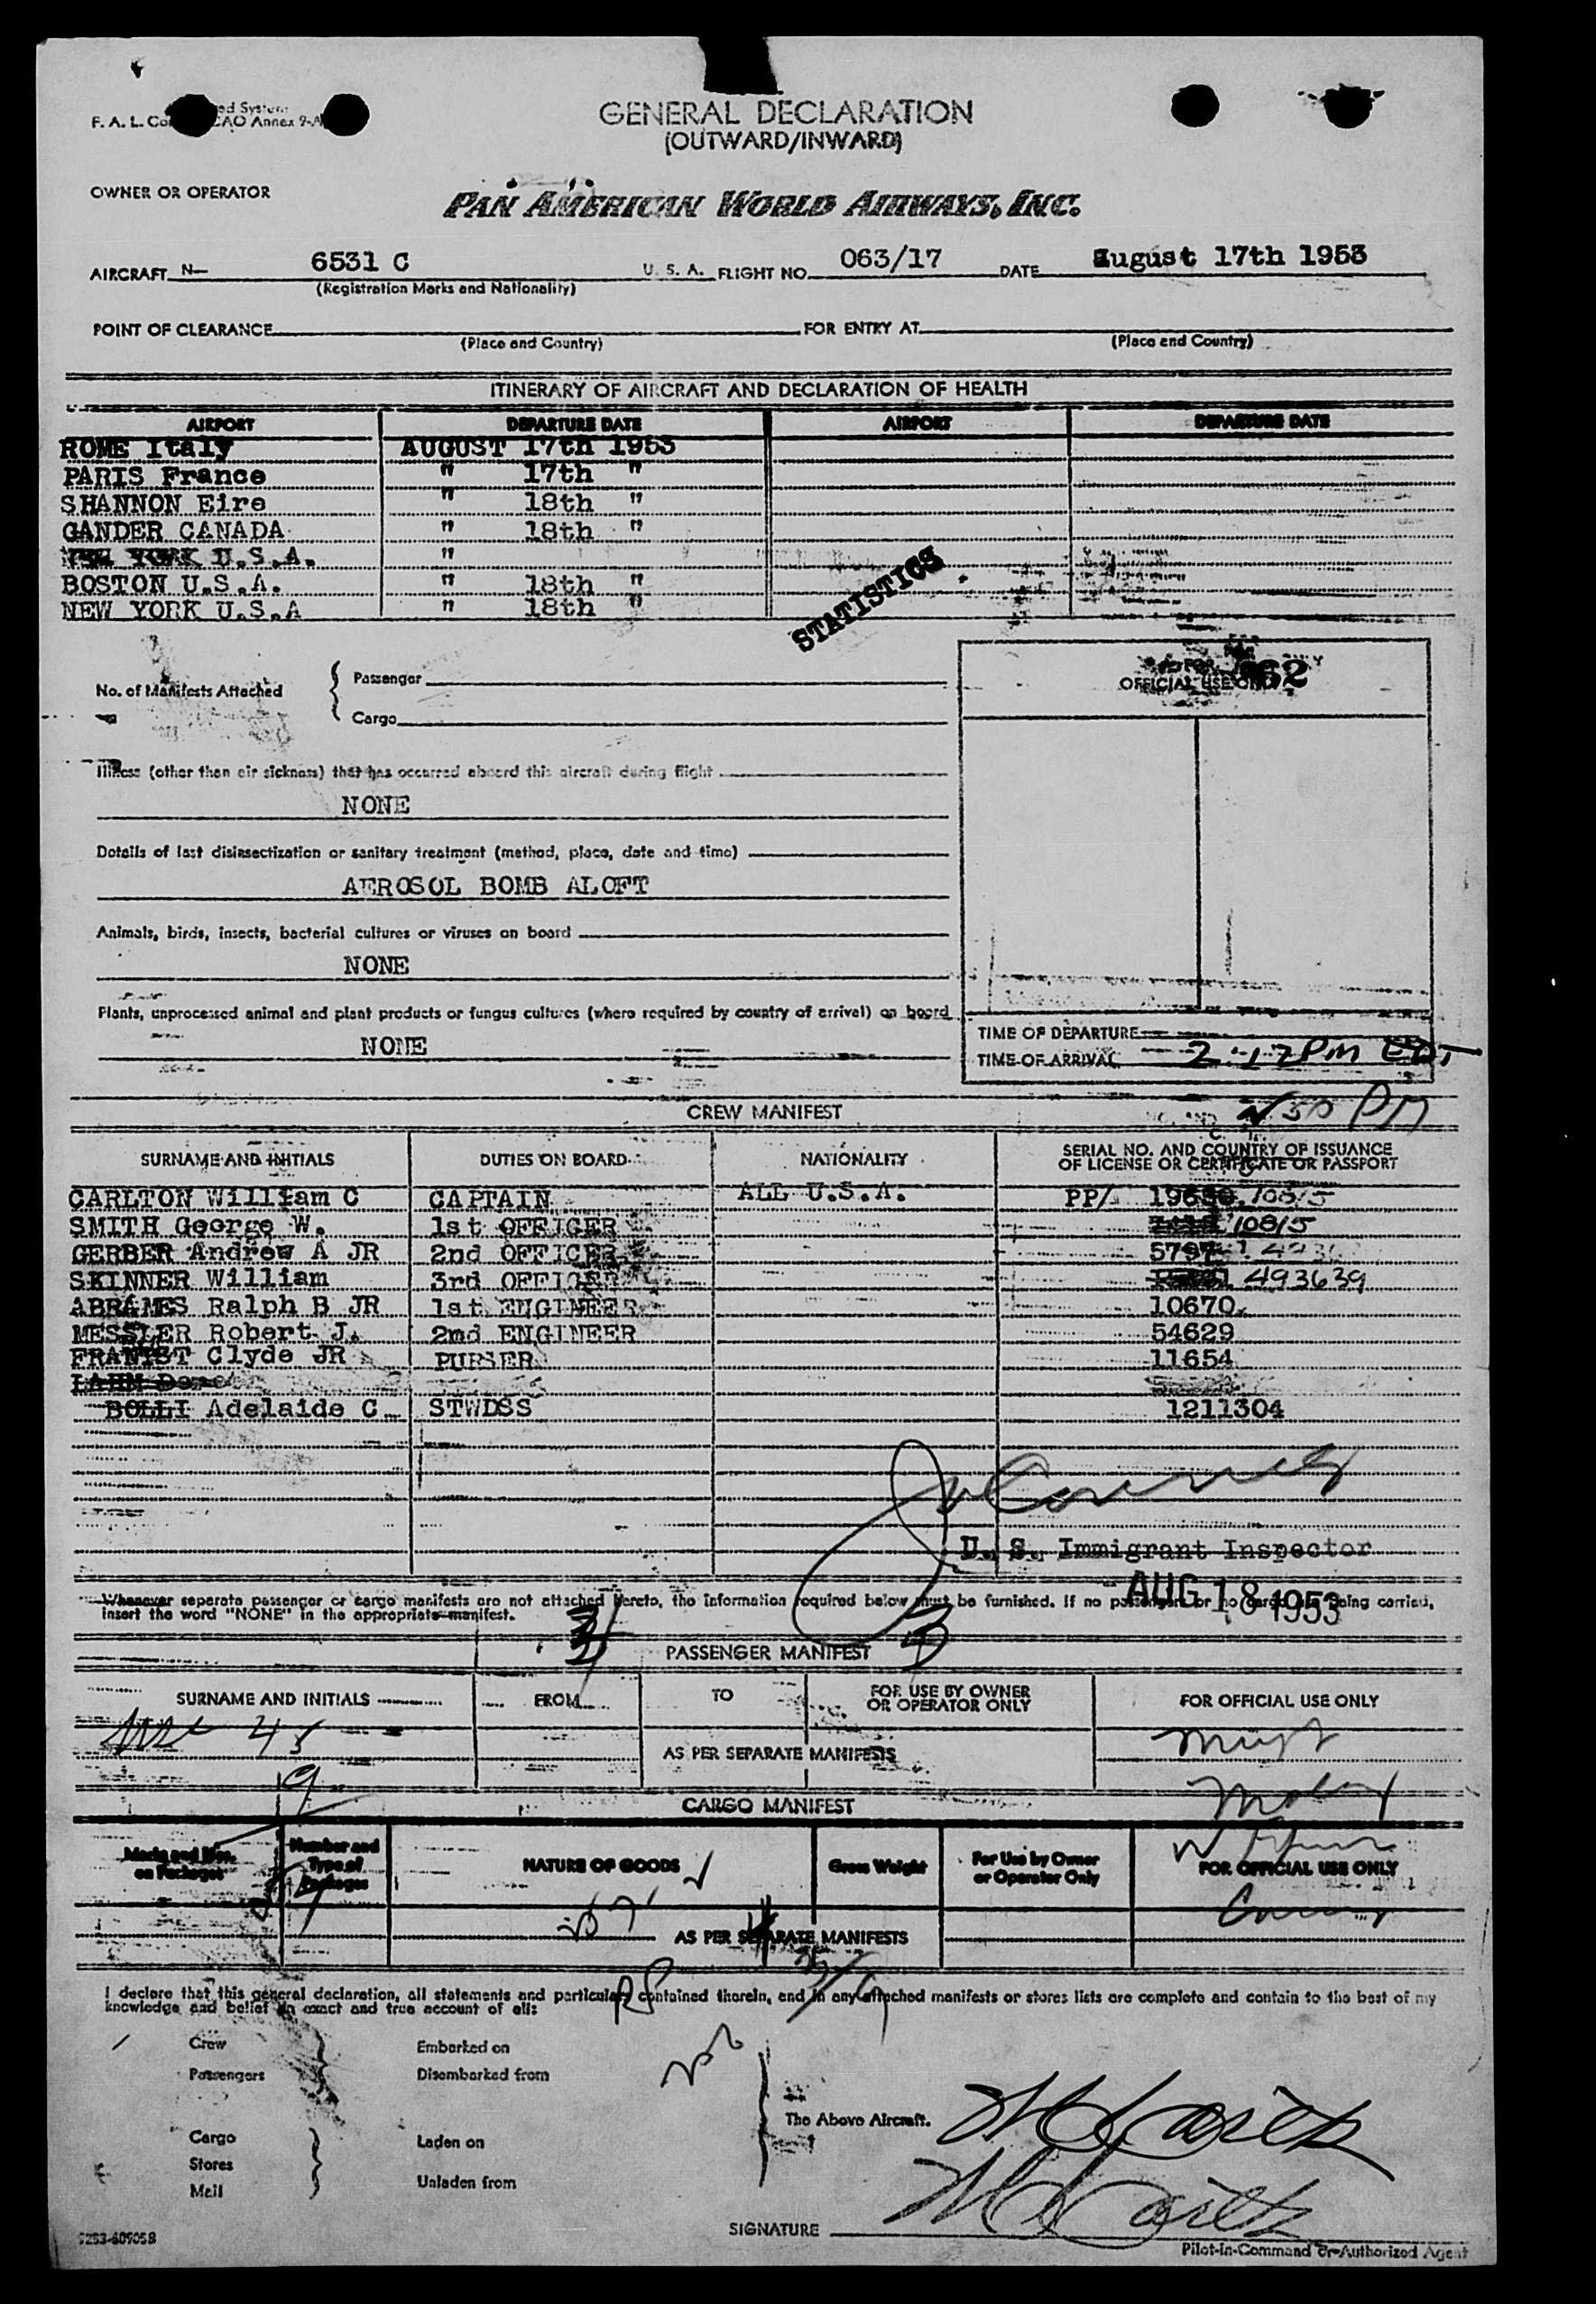 GENERAL DECLARATION
(OUTWARD/INWARD)
OWNER OR OPERATOR
PAN AMERICAN WORLD AIRWAYS, INC.
AIRCRAFT N— 6531 C U. S. A. FLIGHT NO. 063/17 DATE August 17th 1953
(Registration Marks and Nationality)
POINT OF CLEARANCE FOR ENTRY AT
(Place and Country) (Place and Country)
ITINERARY OF AIRCRAFT AND DECLARATION OF HEALTH
AIRPORT DEPARTURE DATE AIRPORT DEPARTURE DATE
ROME Italy AUGUST 17th 1953
PARIS France " 17th "
SHANNON Eire " 18th "
GANDER CANADA " 18th "
NEW YORK U.S.A. "
BOSTON U.S.A. " 18th "
NEW YORK U.S.A " 18th "
STATISTICS
FOR
OFFICIAL USE ONLY 62
No. of Manifests Attached
Passenger
Cargo
Illness (other than air sickness) that has occurred aboard this aircraft during flight
NONE
Details of last disinsectization or sanitary treatment (method, place, date and time)
AEROSOL BOMB ALOFT
Animals, birds, insects, bacterial cultures or viruses on board
NONE
Plants, unprocessed animal and plant products or fungus cultures (where required by country of arrival) on board
NONE
TIME OF DEPARTURE
TIME OF ARRIVAL 2:17 PM EDT
50 PM
CREW MANIFEST
SURNAME AND INITIALS DUTIES ON BOARD NATIONALITY SERIAL NO. AND COUNTRY OF ISSUANCE
OF LICENSE OR CERTIFICATE OR PASSPORT
CARLTON William C CAPTAIN ALL U.S.A. PP/ 10815
SMITH George W. 1st OFFICER 10815
GERBER Andrew A JR 2nd OFFICER
SKINNER William 3rd OFFICER 493639
ABRAMES Ralph B JR 1st ENGINEER 10670
MESSLER Robert J. 2nd ENGINEER 54629
Clyde JR PURSER 11654
LAHM
BOLLI Adelaide C STWDSS 1211304
U. S. Immigrant Inspector
AUG 18 1953
Whenever separate passenger or cargo manifests are not attached hereto, the information required below must be furnished. If no passengers or no cargo are being carried,
insert the word "NONE" in the appropriate manifest.
PASSENGER MANIFEST
SURNAME AND INITIALS FROM TO FOR USE BY OWNER
OR OPERATOR ONLY FOR OFFICIAL USE ONLY
AS PER SEPARATE MANIFESTS
CARGO MANIFEST
Marks and Nos.
on Packages Number and
Type of
Packages NATURE OF GOODS Gross Weight For Use by Owner
or Operator Only FOR OFFICIAL USE ONLY
AS PER SEPARATE MANIFESTS
I declare that this general declaration, all statements and particulars contained therein, and in any attached manifests or stores lists are complete and contain to the best of my
knowledge and belief an exact and true account of all:
Crew Embarked on
Passengers Disembarked from
The Above Aircraft.
Cargo Laden on
Stores
Mail Unladen from
SIGNATURE
Pilot-in-Command or Authorized Agent